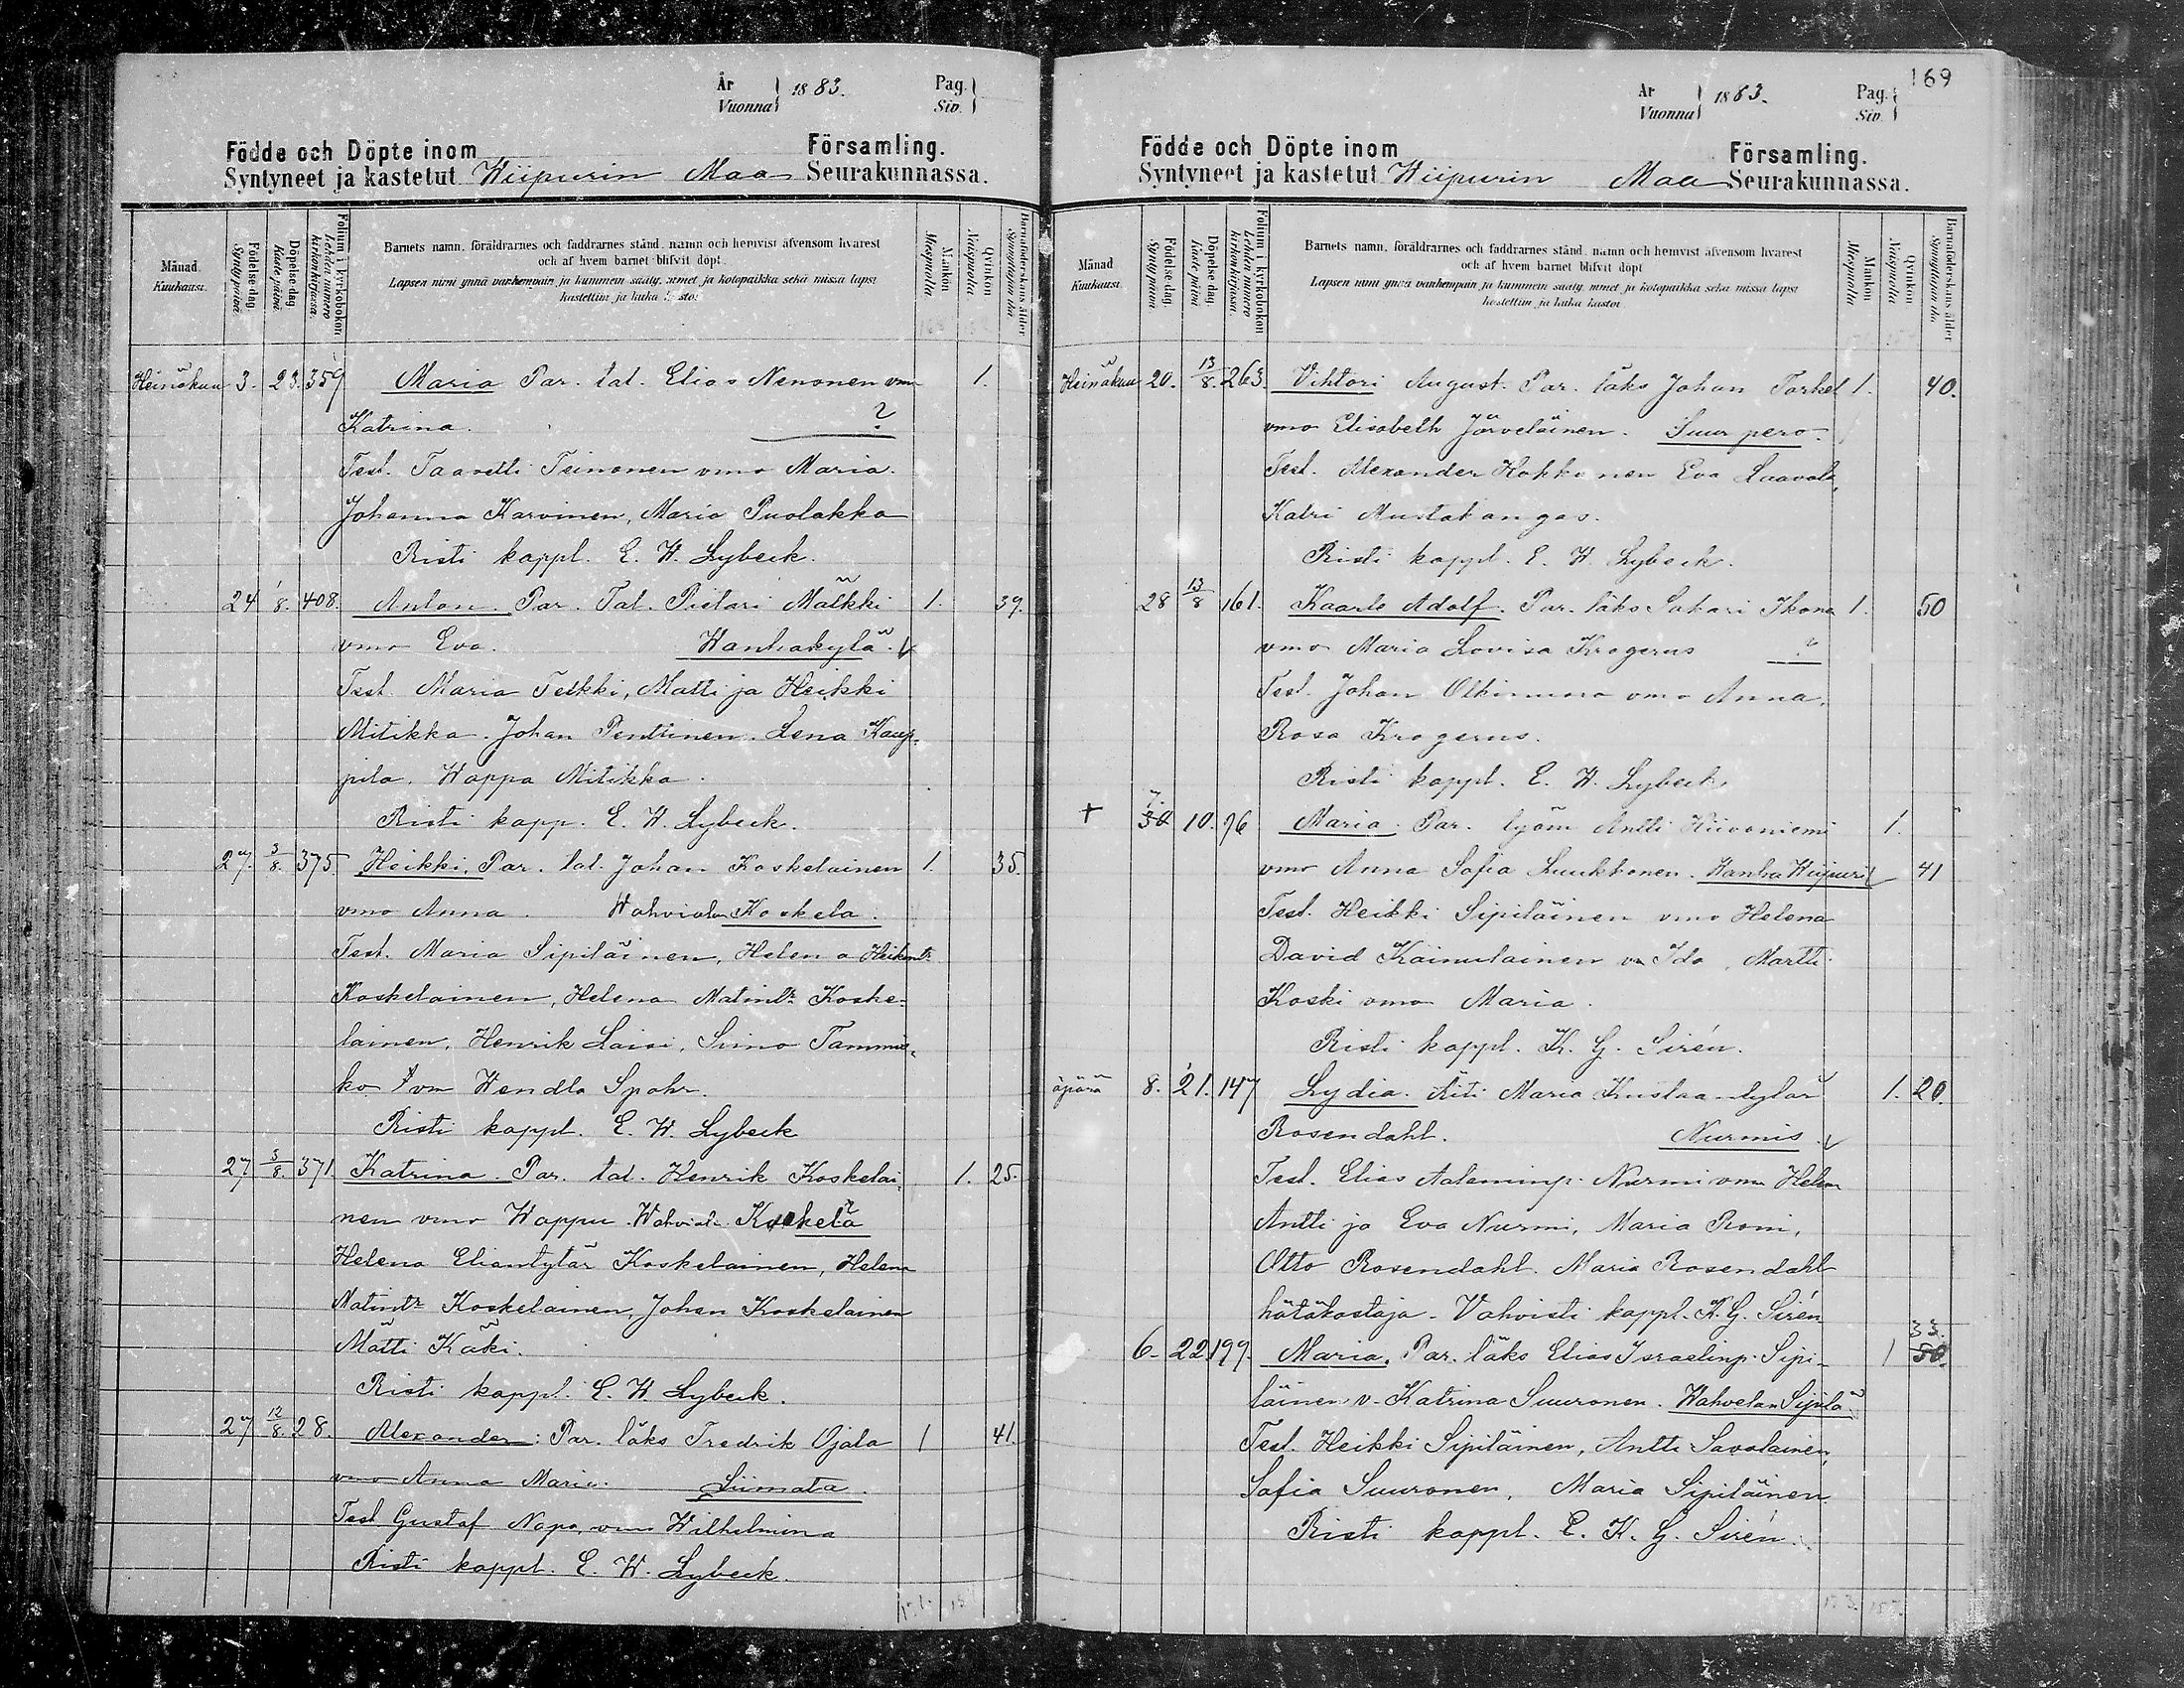 År
Vuonna } 1883.
Pag.
Siv. }
Födde och Döpte inom Församling.
Syntyneet ja kastetut Wiipurin Maa Seurakunnassa.
Månad.
Kuukausi.
Födelse dag.
Syntypäivä.
Döpelse dag.
Kaste päivä.
Folium i kyrkoboken
Lehden numero kirkonkirjassa.
Barnets namn, föräldrarnes och faddrarnes stånd, namn och hemvist äfvensom hvarest
och af hvem barnet blifvit döpt.
Lapsen nimi ynnä vanhempain ja kummein sääty, nimet ja kotopaikka sekä missä lapsi
kastettiin ja kuka kastoi
Mankön
Miespuolta
Qvinkön
Naispuolta
Barnaföderskans ålder
Synnyttäjän ikä
Heinäkuu 3. 23. 359 Maria Par. tal. Elias Nenonen vmo 1.
Katrina. ?
Test. Taavetti Teinonen vmo Maria.
Johanna Karvinen, Maria Puolakka
Risti kappl. E. W. Lybeck.
24 1/8. 408. Anton. Par. Tal. Pietari Mälkki 1. 39.
vmo Eva. Wanhakylä.
Test. Maria Telkki, Matti ja Heikki
Mitikka. Johan Penttinen. Lena Kaup-
pila. Wappa Mitikka.
Risti kapp. E. W. Lybeck.
27. 3/8. 375 Heikki. Par. tal. Johan Koskelainen 1. 35.
vmo Anna. Wahvialan Koskela.
Test. Maria Sipiläinen, Helena Heikintr
Koskelainen, Helena Matintr Koske-
lainen, Henrik Laivi, Simo Tammis-
ko vm Wendla Spohr.
Risti kappl. E. W. Lybeck
27 3/8. 371. Katrina. Par. tal. Henrik Koskelai- 1. 25.
nen vmo Wappu. Wahvial. Koskela
Helena Eliantytär Koskelainen, Helena
Matintr Koskelainen, Johan Koskelainen
Matti Käki.
Risti kappl. E. W. Lybeck.
27 12/8. 28. Alexander: Par. läks Fredrik Ojala 1 41.
vmo Anna Maria. Liimata.
Test Gustaf Nopo, vmo Wilhelmina
Risti kappl. E. W. Lybeck.
169
År
Vuonna } 1883.
Pag.
Siv. }
Födde och Döpte inom Församling.
Syntyneet ja kastetut Wiipurin Maa Seurakunnassa.
Månad
Kuukausi.
Födelse dag.
Syntypäivä.
Döpelse dag.
Kaste päivä
Folium i kyrkoboken
Lehden numero kirkonkirjassa.
Barnets namn, föräldrarnes och faddrarnes stånd, namn och hemvist äfvensom hvarest
och af hvem barnet blifvit döpt
Lapsen nimi ynnä vanhempain ja kummein sääty, nimet ja kotopaikka sekä missä lapsi
kastettiin ja kuka kastoi
Mankön
Miespuolta
Qvinkön
Naispuolta
Barnaföderskans ålder
Synnyttäjän ikä
Heinäkuu 20. 13/8. 263. Vihtori August. Par. läks Johan Torkel 1. 40.
vmo Elisabeth Järveläinen. Suur pero.
Test. Alexander Hokkonen Eva Laavola,
Katri Mustakangas.
Risti kappl. E. W. Lybeck.
28 13/8 161. Kaarlo Adolf. Par. läks Sakari Ikona 1. 50
vmo Maria Lovisa Krogerus ?
Test. Johan Olkinuora vmo Anna.
Rosa Krogerus.
Risti kappl. E. W. Lybeck
+ 7. 30 10. 76 Maria. Par. työm Antti Hiivaniemi 1.
vmo Anna Sofia Luukkonen. Wanha Wiipuri 41
Test. Heikki Sipiläinen vmo Helena
David Kainulainen vm Ida, Martti
Koski vmo Maria.
Risti kappl. K. G. Sirén.
äpärä 8. 21. 147 Lydia. Äiti Maria Kustaa-tytär 1. 20.
Rosendahl. Nurmis.
Test. Elias Nurmi vmo Helena
Antti ja Eva Nurmi, Maria Roni,
Otto Rosendahl. Maria Rosendahl
hätäkastaja. Vahvisti kappl. K. G. Sirén
6. 22. 199. Maria. Par. läks Elias Israelinp. Sipi- 1 33. 50.
läinen v. Katrina Suuronen. Wahvelan Sipilä.
Test. Heikki Sipiläinen, Antti Savolainen,
Sofia Suuronen, Maria Sipiläinen
Risti kappl. E. K. G. Sirén.